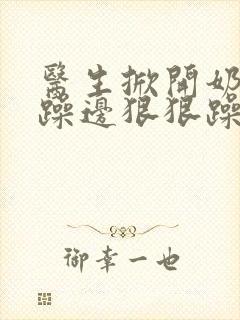 醫生掀開奶
躁邊狠狠躁
御幸一也